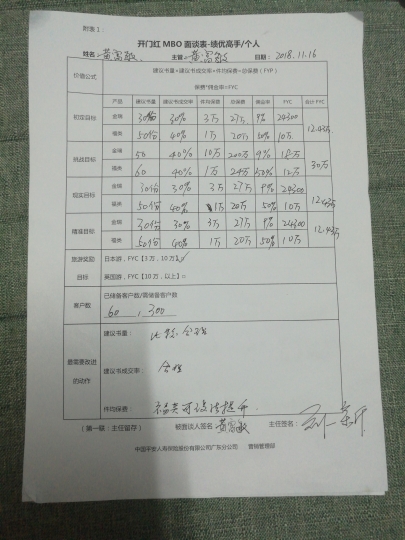 附表 1：
开门红 MBO 面谈表-绩优高手/个人
姓名：黄富敏 主管：黄富敏 日期：2018.11.16
价值公式 建议书量×建议书成交率×件均保费=总保费（FYP）
保费*佣金率=FYC
产品 建议书量 建议书成交率 件均保费 总保费 佣金率 FYC 合计 FYC
初定目标 金瑞 30份 30% 3万 27万 9% 24300 12.43万
福类 50份 40% 1万 20万 50% 10万
挑战目标 金瑞 50 40% 10万 200万 9% 18万 30万
福类 60 40% 1万 24万 50% 12万
现实目标 金瑞 30份 30% 3万 27万 9% 24300 12.43万
福类 50份 40% 1万 20万 50% 10万
精准目标 金瑞 30份 30% 3万 27万 9% 24300 12.43万
福类 50份 40% 1万 20万 50% 10万
旅游奖励目标 日本游，FYC【3万，10万】✓
英国游，FYC【10万，以上】□
客户数 已储备客户数/需储备客户数
60 , 300
最需要改进的动作 建议书量：
建议书成交率： 合格
件均保费：
（第一联：主任留存） 被面谈人签名：黄富敏 主任签名：
中国平安人寿保险股份有限公司广东分公司 营销管理部